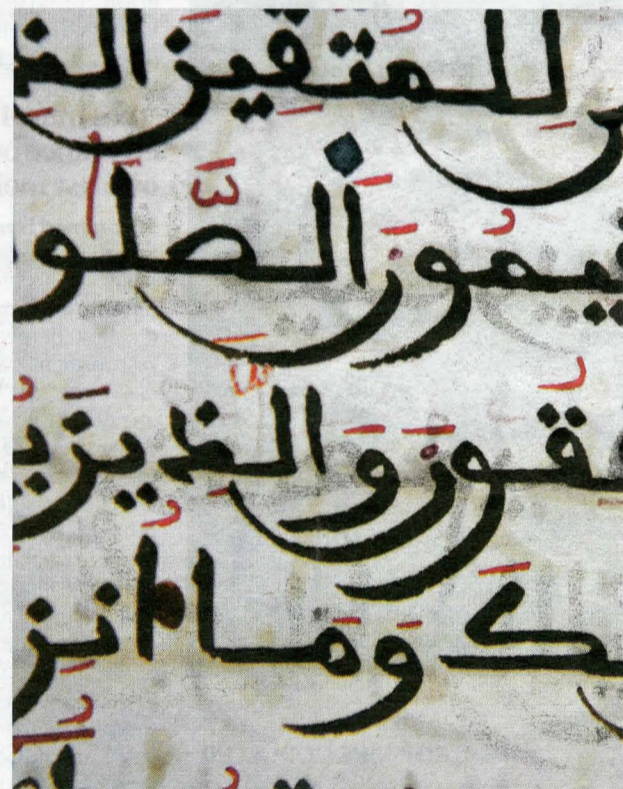 للمتقين الذ
قيمون الصلو
فقون والذين يـ
ـك وما انز